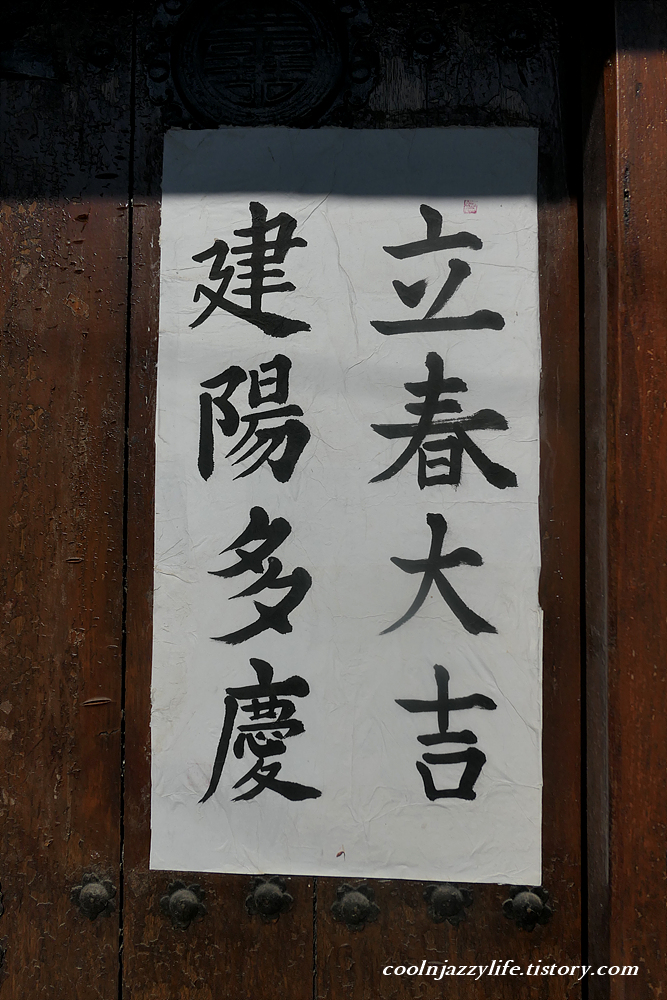 立春大吉
建陽多慶
coolnjazzylife.tistory.com